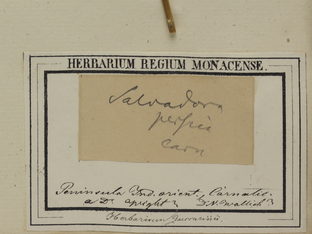 HERBARIUM REGIUM MONACENSE.
Salvadora
persica
Carn
Peninsula Ind. orient., Carnatic.
a Dr. Wight
Herbarium